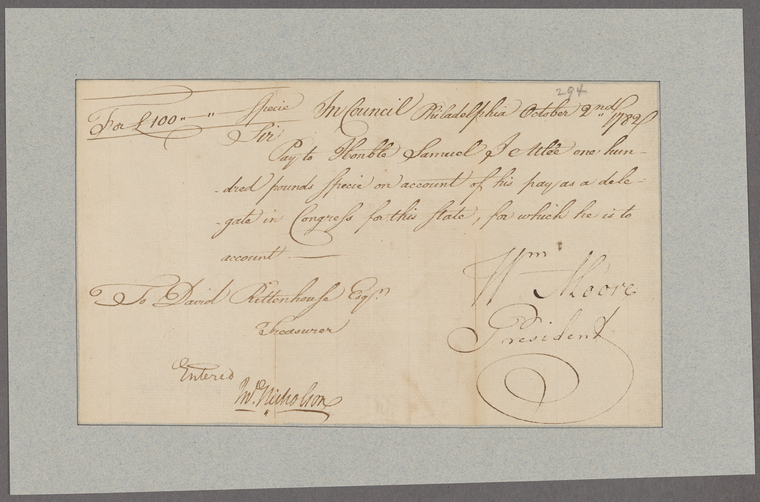 294
For £100 " " Specie In Council Philadelphia October 2nd 1782
Sir
Pay to Honble Samuel J Atlee one hun-
-dred pounds specie on account of his pay as a dele-
-gate in Congress for this state, for which he is to
account.
Wm Moore
President
To David Rittenhouse Esqr.
Treasurer
Entered
Jno. Nicholson